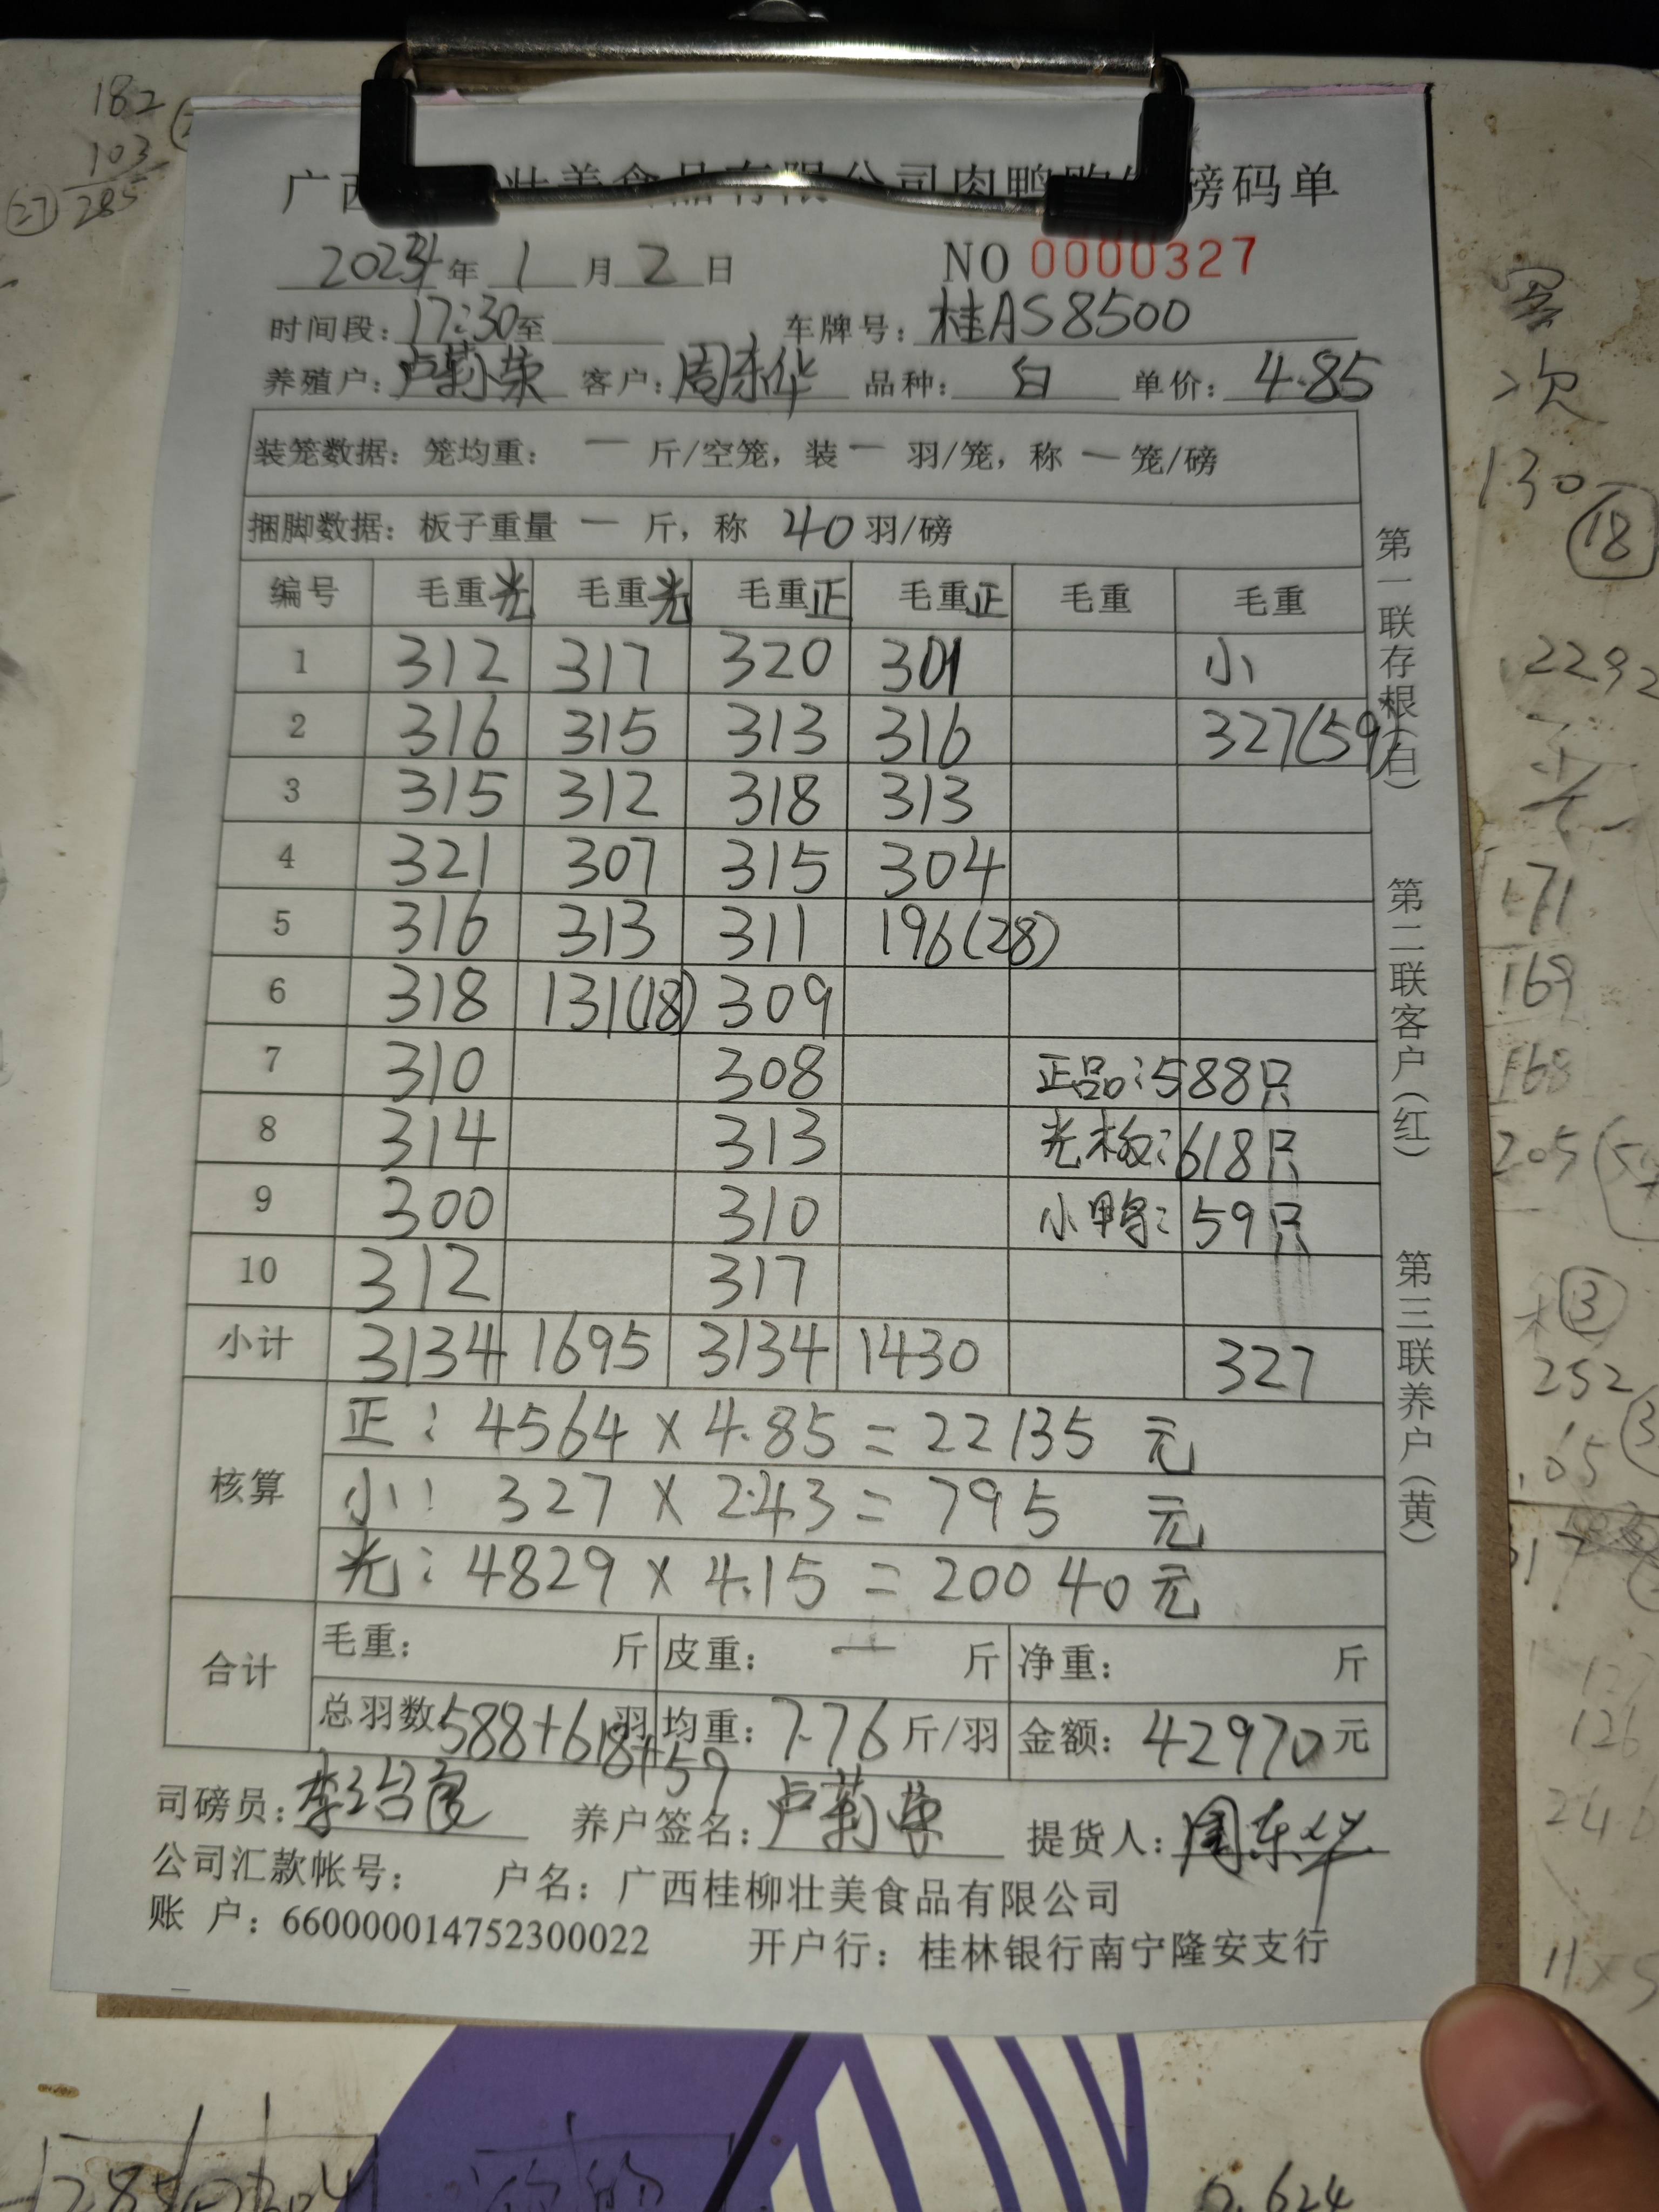 182
103
(27) 285
广西 壮美食品有限公司肉鸭购销磅码单
2024年 1月2日 NO 0000327
时间段：17:30至 车牌号：桂AS8500
养殖户：卢莉荣 客户：周东华 品种：白 单价：4.85
装笼数据：笼均重： 一 斤/空笼，装 一 羽/笼，称 一 笼/磅
捆脚数据：板子重量 一 斤，称 40 羽/磅
编号 毛重光 毛重光 毛重正 毛重正 毛重 毛重
1 312 317 320 301 小
2 316 315 313 316 327(59)
3 315 312 318 313
4 321 307 315 304
5 316 313 311 196(28)
6 318 131(18) 309
7 310 308 正品：588只
8 314 313 光板：618只
9 300 310 小鸭：59只
10 312 317
小计 3134 1695 3134 1430 327
核算
正：4564 × 4.85 = 22135 元
小：327 × 2.43 = 795 元
光：4829 × 4.15 = 20040元
合计
毛重： 斤 皮重： 一 斤 净重： 斤
总羽数588+618+59羽 均重：7.76斤/羽 金额：42970元
司磅员：李绍良 养户签名：卢莉荣 提货人：周东华
公司汇款帐号： 户名：广西桂柳壮美食品有限公司
账 户：660000014752300022 开户行：桂林银行南宁隆安支行
第一联存根（白）
第二联客户（红）
第三联养户（黄）
次
130
18
2292
171
169
168
205
3
252
126
246
11×5
0.624